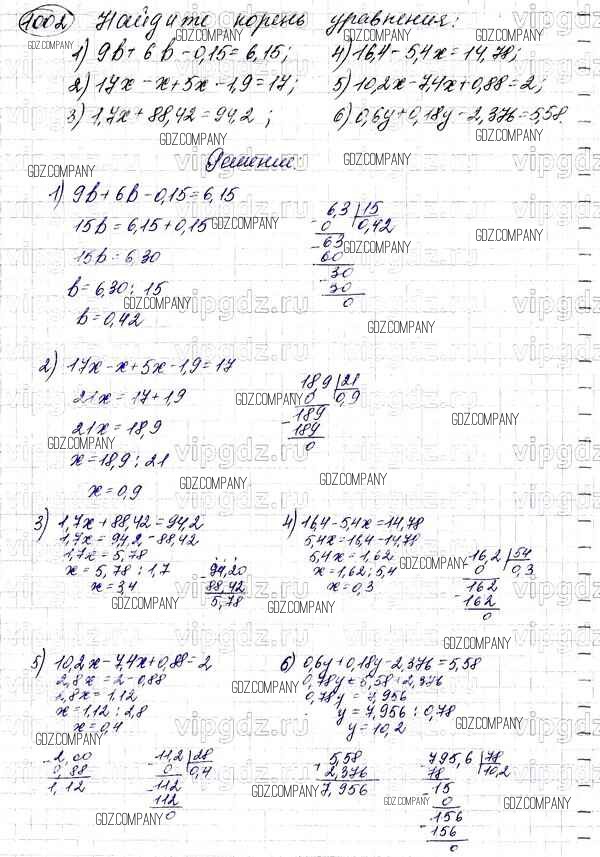 1002 Найдите корень уравнения:
1) 9b + 6b - 0,15 = 6,15; 4) 16,4 - 5,4x = 14,78;
2) 17x - x + 5x - 1,9 = 17; 5) 10,2x - 7,4x + 0,88 = 2;
3) 1,7x + 88,42 = 94,2; 6) 0,6y + 0,18y - 2,376 = 5,58.
Решение:
1) 9b + 6b - 0,15 = 6,15
15b = 6,15 + 0,15
15b = 6,30
b = 6,30 : 15
b = 0,42
6,3 15
0 0,42
- 63
60
- 30
30
0
2) 17x - x + 5x - 1,9 = 17
21x = 17 + 1,9
21x = 18,9
x = 18,9 : 21
x = 0,9
18,9 21
0 0,9
- 189
189
0
3) 1,7x + 88,42 = 94,2
1,7x = 94,2 - 88,42
1,7x = 5,78
x = 5,78 : 1,7
x = 3,4
- 94,20
88,42
5,78
4) 16,4 - 5,4x = 14,78
5,4x = 16,4 - 14,78
5,4x = 1,62
x = 1,62 : 5,4
x = 0,3
- 16,2 54
0 0,3
- 162
162
0
5) 10,2x - 7,4x + 0,88 = 2
2,8x = 2 - 0,88
2,8x = 1,12
x = 1,12 : 2,8
x = 0,4
- 2,00
0,88
1,12
- 11,2 28
0 0,4
- 112
112
0
6) 0,6y + 0,18y - 2,376 = 5,58
0,78y = 5,58 + 2,376
0,78y = 7,956
y = 7,956 : 0,78
y = 10,2
+ 5,58
2,376
7,956
- 795,6 78
78 10,2
- 15
0
- 156
156
0
GDZ.COMPANY
vipgdz.ru